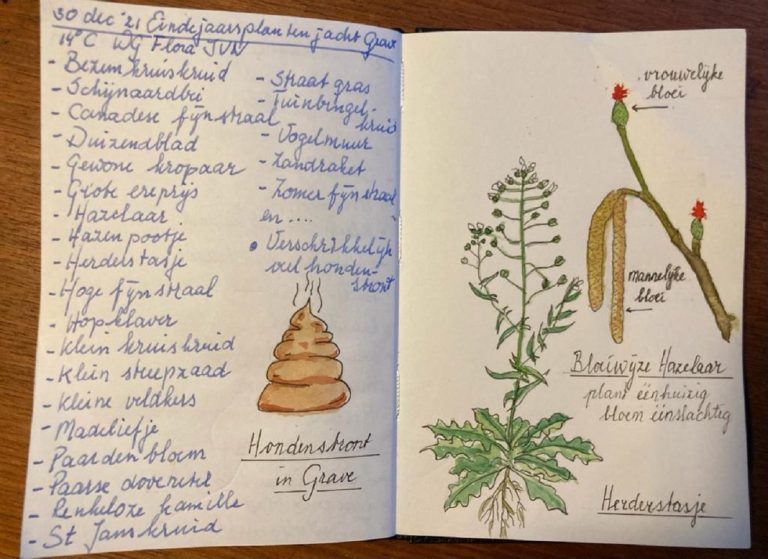 30 dec '21 Eindejaarsplantenjacht Grave
14°C Wg Flora IVN
- Bezemkruiskruid
- Schijnaardbei
- Canadese fijnstraal
- Duizendblad
- Gewone kropaar
- Grote ereprijs
- Hazelaar
- Hazenpootje
- Herderstasje
- Hoge fijnstraal
- Hopklaver
- Klein kruiskruid
- Klein streepzaad
- Kleine veldkers
- Madeliefje
- Paardenbloem
- Paarse dovenetel
- Reukeloze kamille
- St Janskruid
- Straatgras
- Tuinbingel-
kruid
- Vogelmuur
- Zandraket
- Zomerfijnstraal
en ....
• Verschrikkelijk
veel honden-
stront
Hondenstront
in Grave
vrouwelijke
bloei
mannelijke
bloei
Bloeiwijze Hazelaar
plant éénhuizig
bloem éénslachtig
Herderstasje